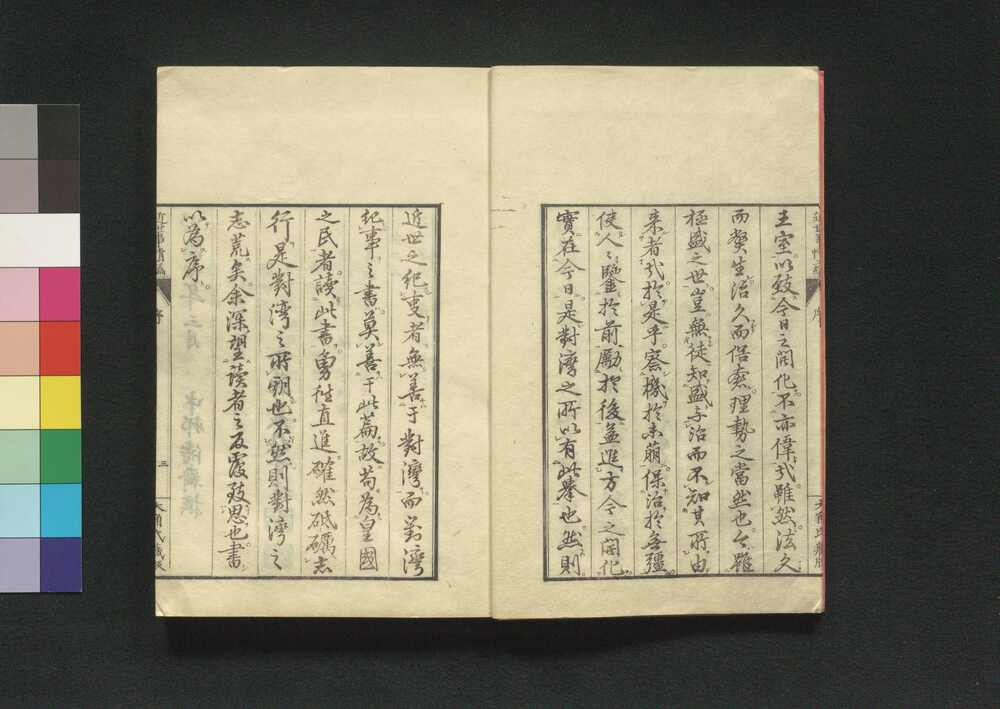 王室以致今日之開化不亦偉哉雖然法久
而弊生治久而倦怠理勢之當然也今雖
極盛之世豈無徒知盛与治而不知其所由
来者哉於是乎察機於未萌保治於無疆
使人々鑒於前勵於後益進方今之開化
實在今日是對灣之所以有此擧也然則
近世之紀事者無善于對灣而對灣
紀事之書莫善于此篇故苟為皇國
之民者讀此書勇往直進確然砥礪志
行是對灣之所朝也不然則對灣之
志荒矣余深望讀者之反覆致思也書
以為序
近世事情
序
三
大角氏蔵版